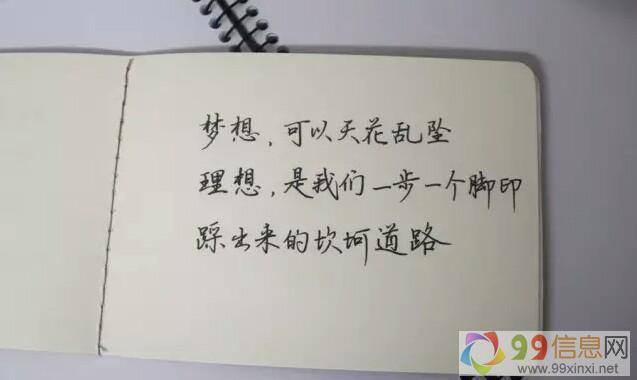 梦想，可以天花乱坠
理想，是我们一步一个脚印
踩出来的坎坷道路
99信息网
www.99xinxi.net